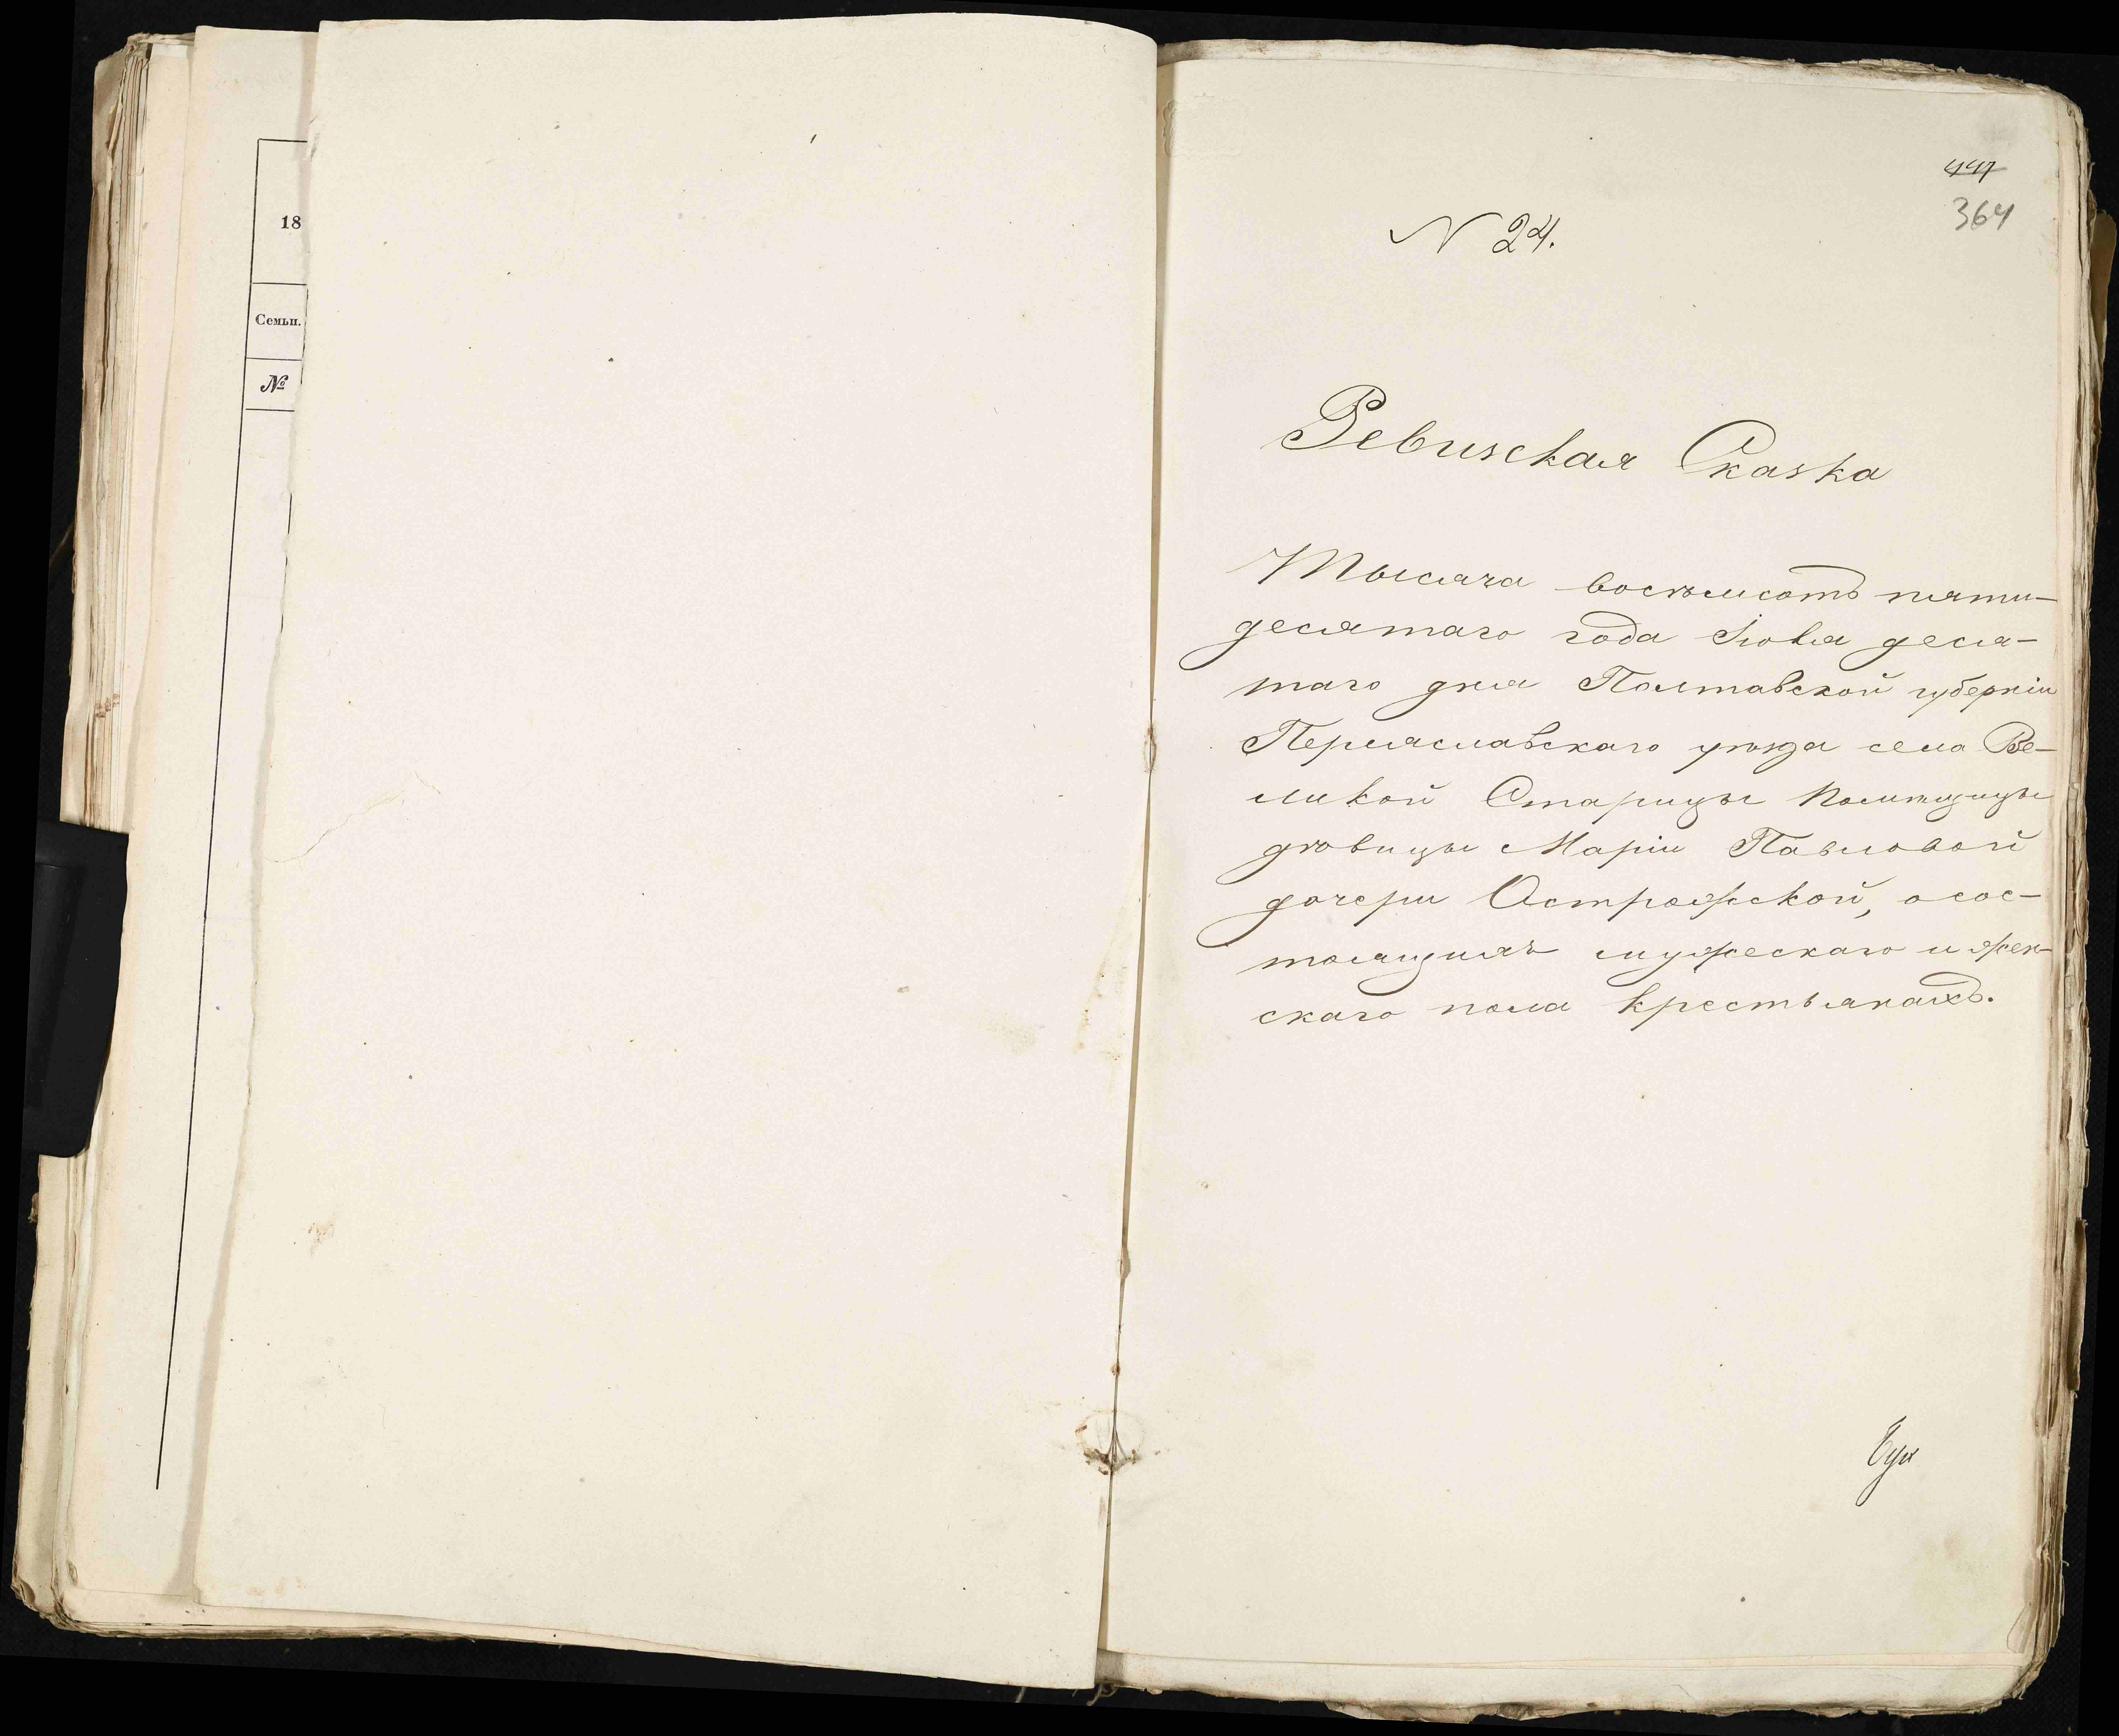 18
Семьи.
№
447
364
N 24.
Ревизская Сказка
Тысяча восемьсотъ пяти-
десятаго года Іюля деся-
таго дня Полтавской губерніи
Переяславскаго уѣзда села Ве-
ликой Старицы помѣщицы
дѣвицы Маріи Павловой
дочери Острожской, осос-
тоящихъ мужескаго и жен-
скаго пола крестьянахъ.